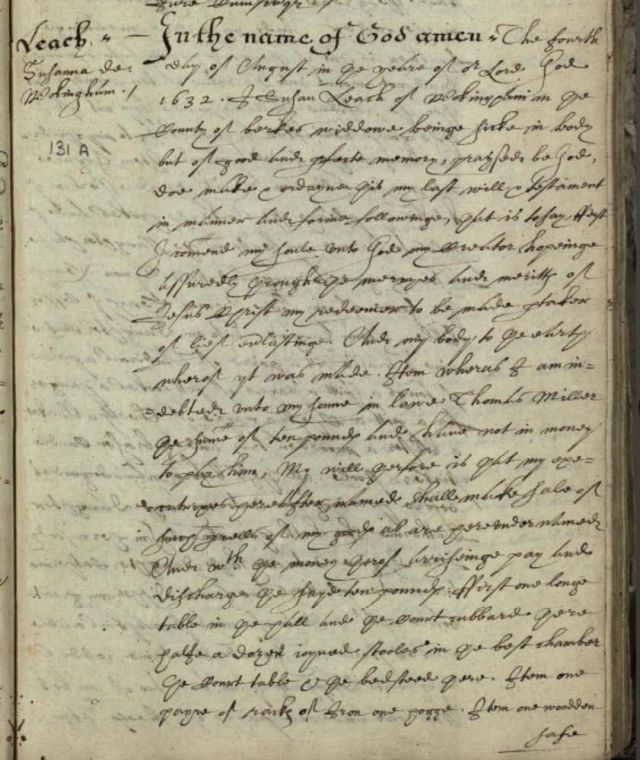 Leach
Susanna de
Wokingham
131 A
In the name of God amen. The fourth
day of August in ye yeare of or Lord God
1632. I Susan Leach of Wokingham in ye
County of Berkes widdowe beinge sicke in body
but of good and perfecte memory, praysed be God,
doe make & ordayne this my last will & testament
in manner and forme followinge, that is to say, ffirst
I comend my soule unto God my Creator hopeinge
assuredly through ye mercyes and meritts of
Jesus Christ my redeemer to be made ptaker
of lief evlastinge. And my body to ye earth
wherof yt was made. Item wheras I am in=
=debted unto my sonne in lawe Thomas Miller
ye sume of ten pounds and have not in money
to pay him, My will therfore is that my exe=
cutors hereafter named shall make sale of
such pcells of my goods as are hereunder named
And wth ye money therof ariseinge pay and
discharge ye sayd ten pounds. ffirst one longe
table in ye hall and ye Court cubbard there
halfe a dozen ioyned stooles in ye best chamber
ye Court table & ye bedsteed there. Item one
payre of racks of Iron one Item one woodden